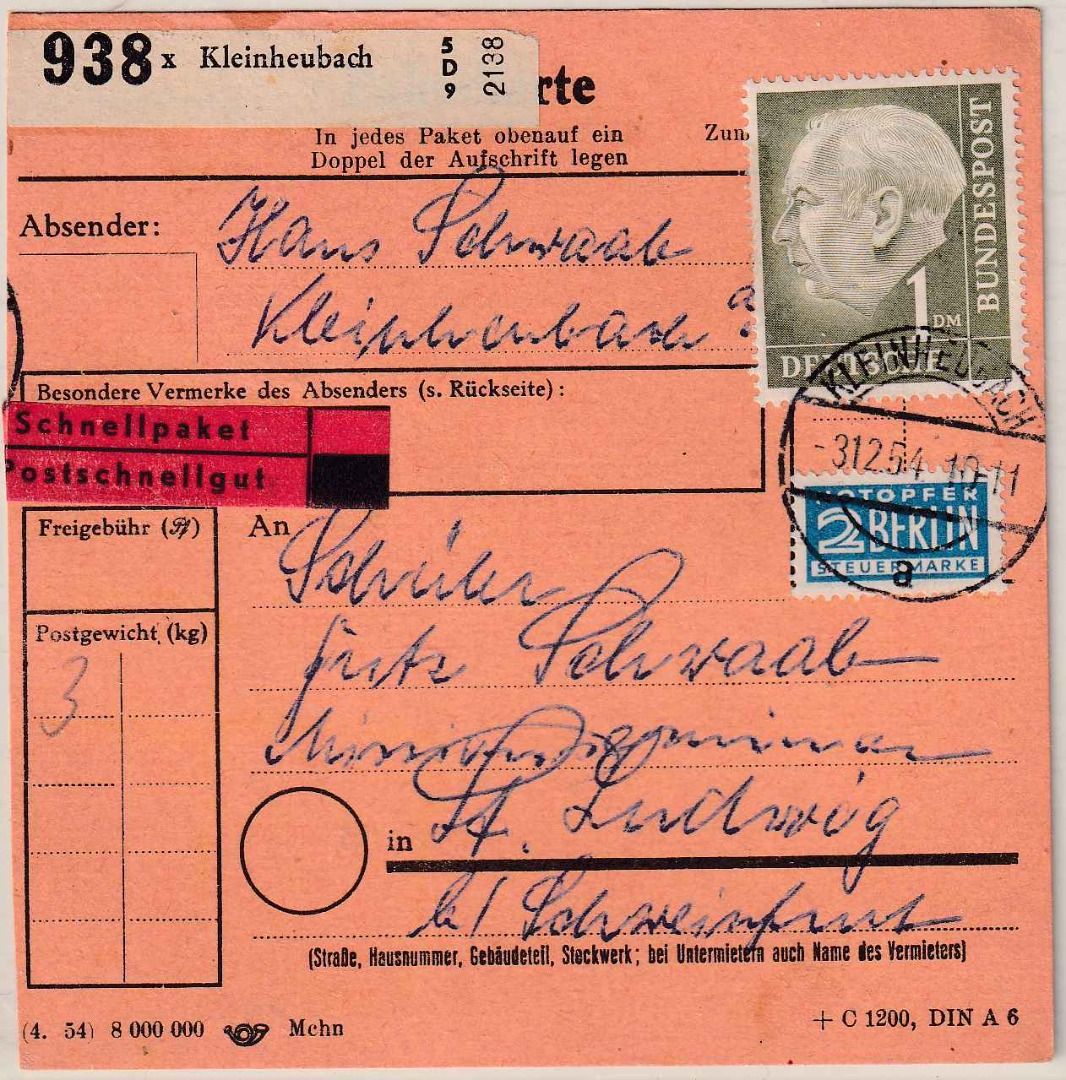 938 x Kleinheubach 5D9 2138
rte
In jedes Paket obenauf ein
Doppel der Aufschrift legen
Zun
1 DM
DEUTSCHE
BUNDESPOST
Absender:
Hans Schwaab
Kleinheubach a
KLEINHEUBACH
-3.12.54.10-11
a
Besondere Vermerke des Absenders (s. Rückseite):
Schnellpaket
Postschnellgut
NOTOPFER
2 BERLIN
STEUERMARKE
Freigebühr (Pf)
Postgewicht (kg)
3
An
Schüler
Fritz Schwaab
in St. Ludwig
b/ Schweinfurt
(Straße, Hausnummer, Gebäudeteil, Stockwerk; bei Untermietern auch Name des Vermieters)
(4. 54) 8 000 000 Mchn
+ C 1200, DIN A 6